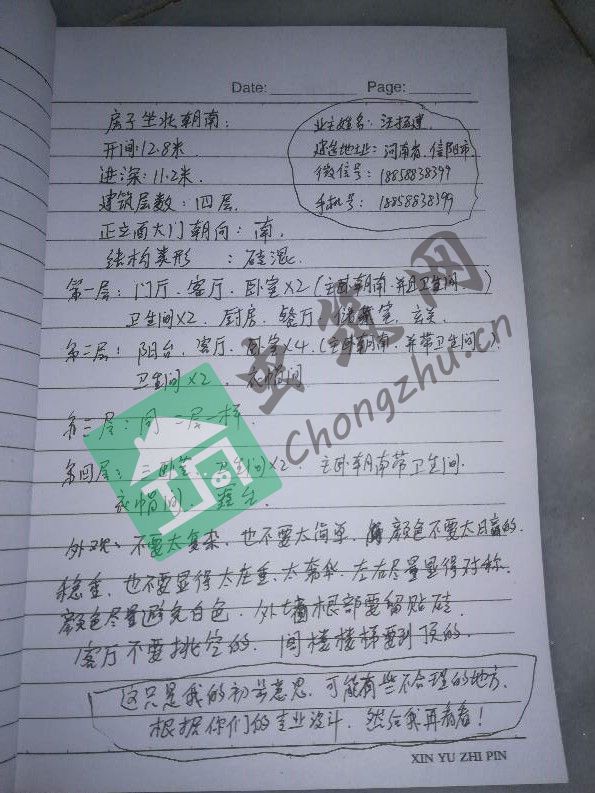 Date: Page:
房子坐北朝南：
开间：12.8米
进深：11.2米
建筑层数：四层
正立面大门朝向：南
结构类形：砖混
业主姓名：汪
建造地址：河南省信阳市
微信号：18858838399
手机号：18858838399
第一层：门厅、客厅、卧室×2（主卧朝南、并且卫生间
卫生间×2、厨房、餐厅、储藏室、玄关
第二层：阳台、客厅、卧室×4（主卧朝南、并带卫生间）
卫生间×2、衣帽间
第三层：同二层一样
第四层：三卧室、卫生间×2、主卧朝南带卫生间
衣帽间、露台
外观：不要太复杂、也不要太简单、颜色不要太的
稳重、也不要显得太庄重、太奢华、左右尽量显得对称
颜色尽量避免白色、外墙根部要留贴砖
客厅不要挑空的、间楼楼梯要到顶的
这只是我的初步意思、可能有些不合理的地方、
根据你们的专业设计、然后我再看看！
虫筑网
Chongzhu.cn
XIN YU ZHI PIN